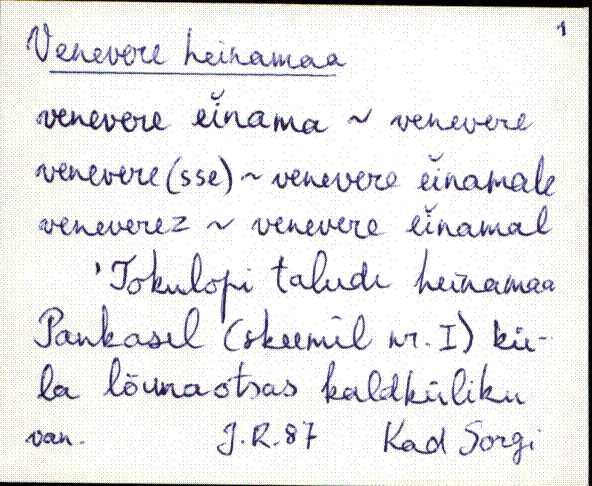 1
Venevere heinamaa
venevere eĭnama ~ venevere
venevere(sse) ~ venevere eĭnamale
veneverez ~ venevere eĭnamal
'Tokulopi talude heinamaa
Pankasel (skeemil nr. I) kü-
la lõunaotsas kaldküliku
van. J.R.87 Kad Sorgi